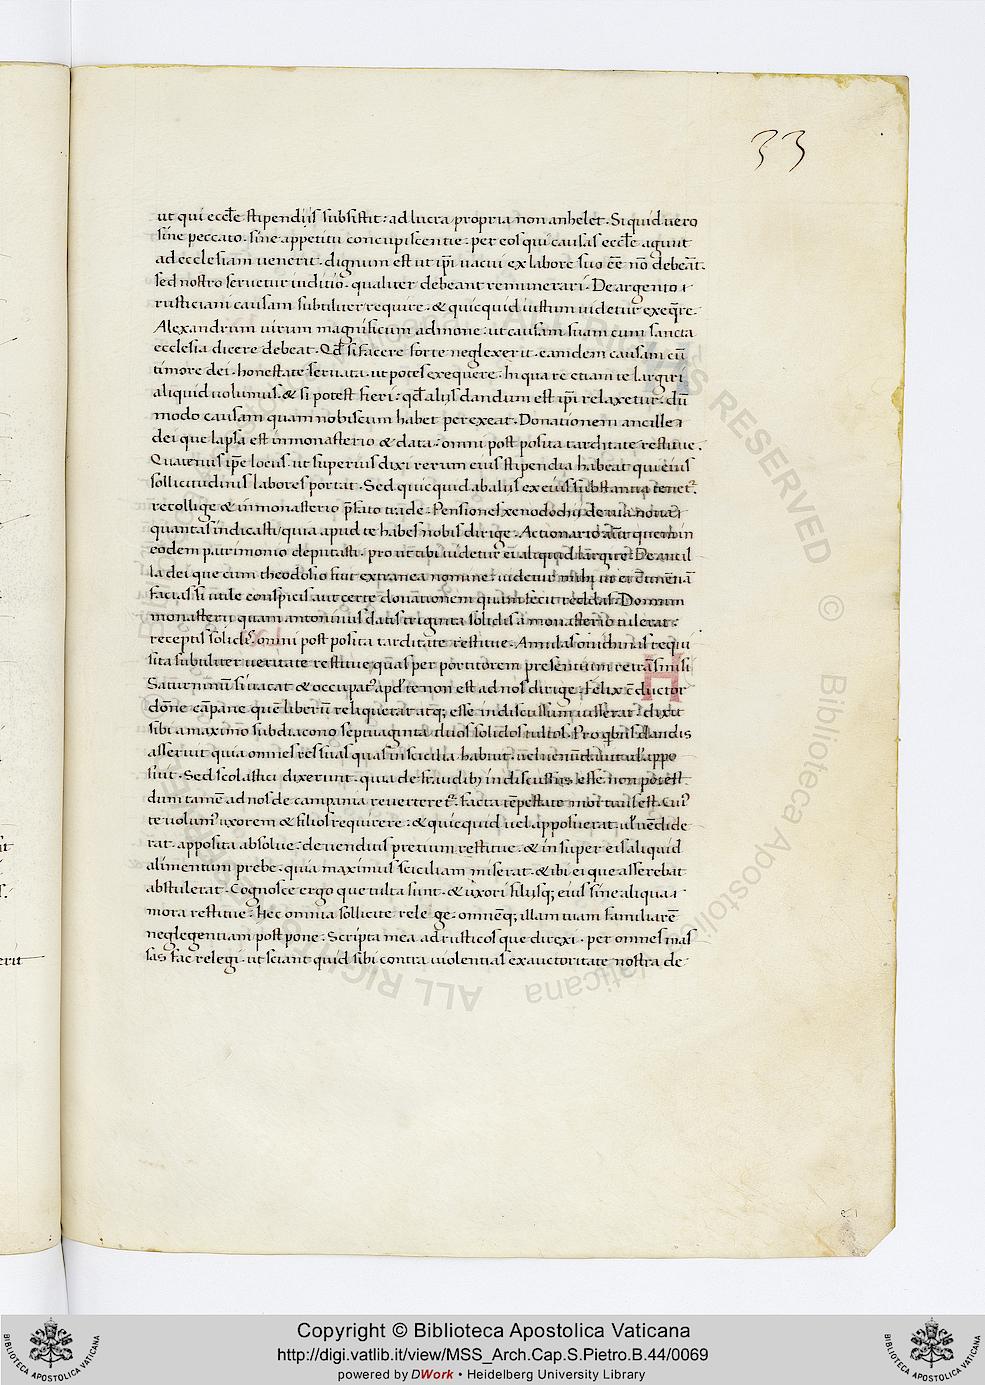 33
ut qui eccl̄e stipendiis subsistit: ad lucra propria non anhelet. Si quid uero
sine peccato. sine appetitu concupiscentie. per eos qui causas eccl̄e agunt
ad ecclesiam uenerit. dignum est ut ip̄i uacui ex labore suo ēē nō debeāt.
sed nostro seruetur iuditio. qualiter debeant remunerari. De argento
rusticiani causam subtiliter require. & quicquid iustum uidetur exeq̄re.
Alexandrum uirum magnificum admone. ut causam suam cum sancta
ecclesia dicere debeat. Qd̄ si facere forte neglexerit. eamdem causam cū
timore dei. honestate seruata. ut potes exequere. In qua re etiam te largiri
aliquid uolumus. & si potest fieri. qd̄ aliis dandum est ip̄i relaxetur. dū
modo causam quam nobiscum habet perexeat. Donationem ancille
dei que lapsa est in monasterio & data. omni post posita tarditate restitue.
Quatenus ip̄e locus. ut superius dixi rerum eius stipendia habeat qui eius
sollicitudinis labores portat. Sed quicquid ab aliis ex eius substantia tenet̄.
recollige & in monasterio p̄fato trade. Pensiones xenodochii de uia noua
quantas indicasti quia apud te habes nobis dirige. Actionario aūt quem in
eodem patrimonio deputasti. prout tibi uidetur ei aliquid largire. De ancil
la dei que cum theodosio fuit extranea nomine. uidetur mihi ut ei
facias si utile conspicis aut certe donationem quam fecit reddas. Domum
monasterii quam antoninus datis triginta solidis a monasterio tulerat:
receptis solidis. omni post posita tarditate restitue. Amulas onichinas requi
sita subtiliter ueritate restitue quas per portitorem presentium retrāsmisi
Saturninū si uacat & occupat' apd̄ te non est ad nos dirige. Felix ē ductor
dōne cāpane quē liberū reliquerat atq; esse indiscussum iusserat. dixit
sibi a maximo subdiacono septuaginta duos solidos tultos. Pro qbus dandis
asseruit quia omnes res suas quas in scicilia habuit. uel uenūdauit ul' appo
suit. Sed scolastici dixerunt. quia de fraudib; indiscussus esse non potest.
dum tamē ad nos de campania reuerteret̄. facta tēpestate mortuus est. Cui'
te uolum' uxorem & filios requirere. & quicquid uel apposuerat. ul' uēdide
rat. apposita absolue. de uenditis pretium restitue. & insuper eis aliquid
alimentum prebe. quia maximus sciciliam miserat. & ibi ei que asserebat
abstulerat. Cognosce ergo que tulta sunt. & uxori filiisq; eius sine aliqua
mora restitue. Hec omnia sollicite rele ge. omnēq; illam tuam familiarē
neglegentiam post pone. Scripta mea ad rusticos que direxi. per omnes mas
sas fac relegi. ut sciant quid sibi contra uiolentias ex auctoritate nostra de
ALL RIGHTS RESERVED © Biblioteca Apostolica Vaticana
Copyright © Biblioteca Apostolica Vaticana
http://digi.vatlib.it/view/MSS_Arch.Cap.S.Pietro.B.44/0069
powered by DWork • Heidelberg University Library
BIBLIOTECA APOSTOLICA VATICANA
BIBLIOTECA APOSTOLICA VATICANA